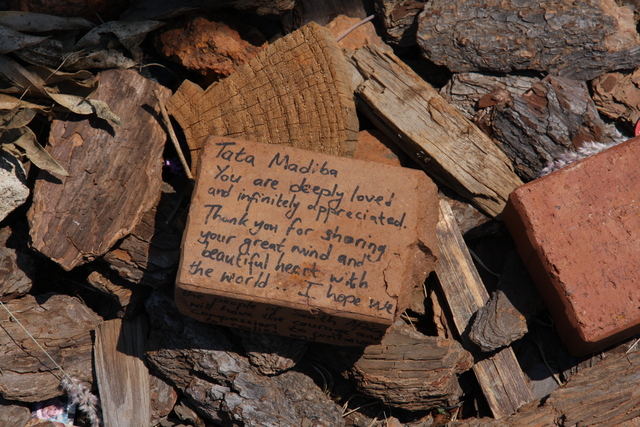 Tata Madiba
You are deeply loved
and infinitely appreciated.
Thank you for sharing
your great mind and
beautiful heart with
the world I hope we
will have the courage